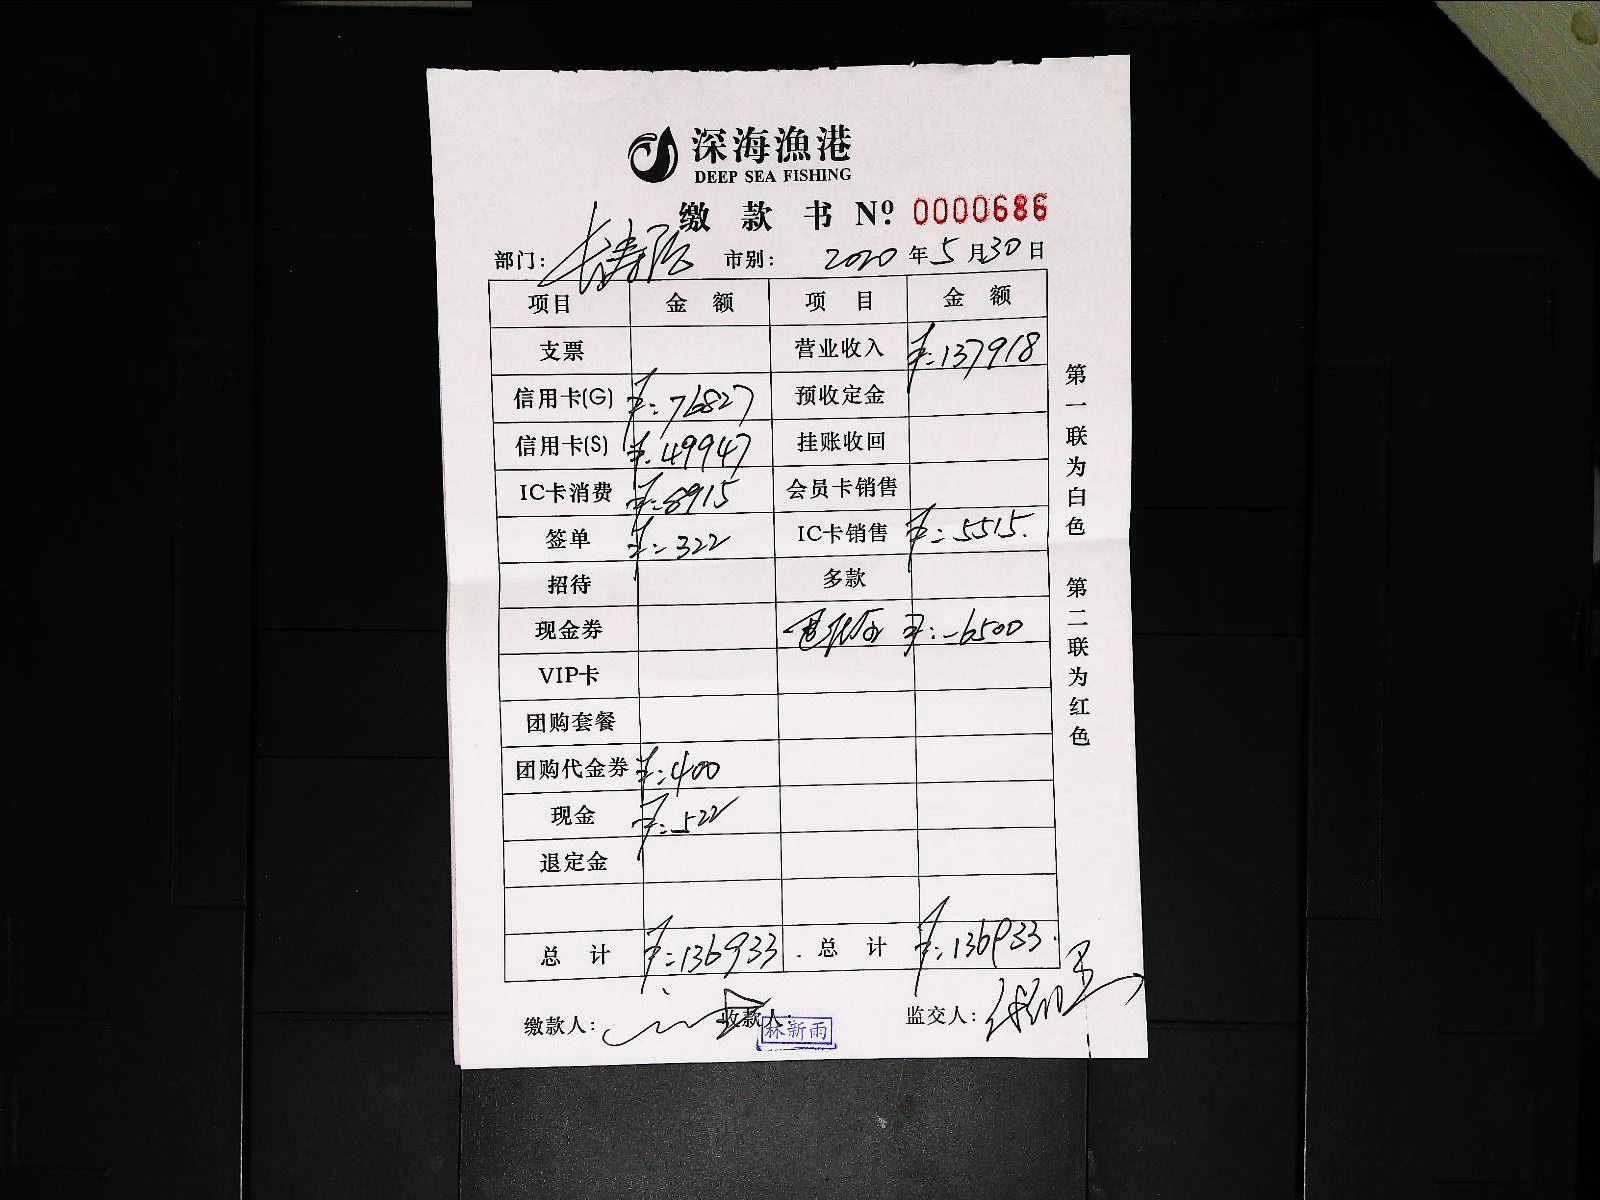 深海漁港
DEEP SEA FISHING
缴 款 书 Nº 0000686
部门: 长寿路 市别: 2020 年 5 月 30 日
项目 金 额 项 目 金 额
支票 营业收入 ¥:137918
信用卡(G) ¥:76827 预收定金
信用卡(S) ¥:49947 挂账收回
IC卡消费 ¥:8915 会员卡销售
签单 ¥:322 IC卡销售 ¥:5515.
招待 多款
现金券 ¥:-6500
VIP卡
团购套餐
团购代金券 ¥:400
现金 ¥:522
退定金
总 计 ¥:136933. 总 计 ¥:136933.
缴款人: 收款人: 林新雨 监交人:
第一联为白色 第二联为红色